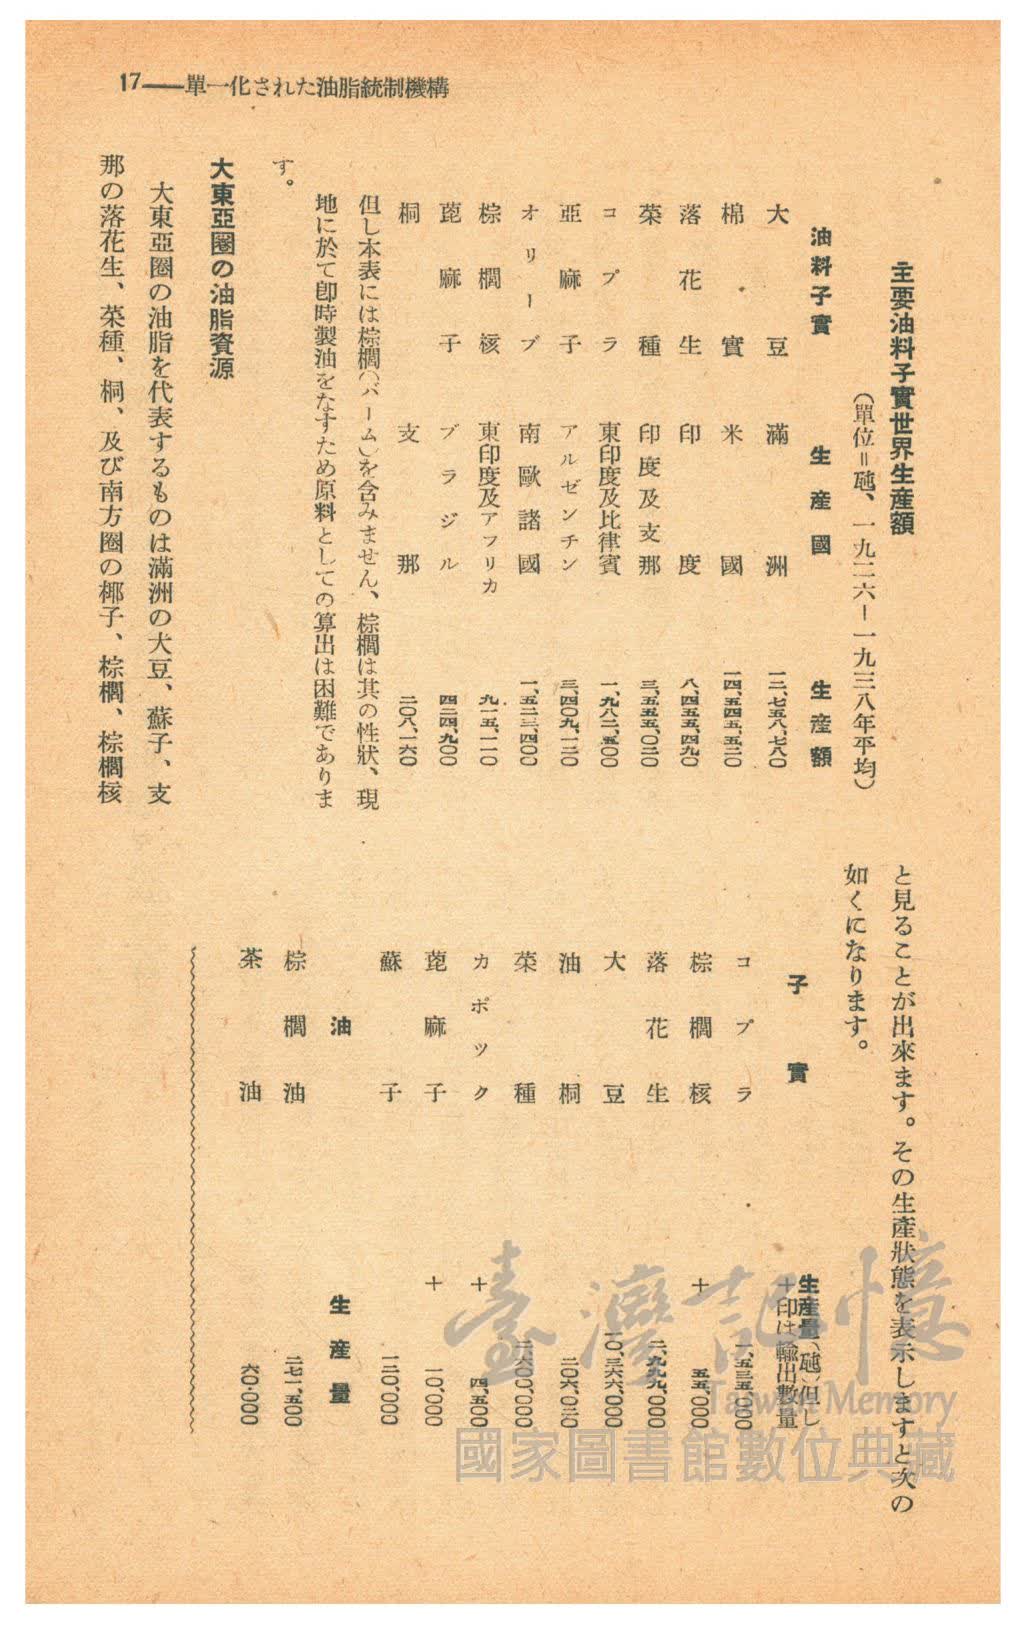 17——單一化された油脂統制機構
主要油料子實世界生產額
（單位＝瓲、一九二六－一九三八年平均）
油料子實　生產國　生產額
大豆　滿洲　一二、七五八、七八〇
棉實　米國　一四、五四五、五二〇
落花生　印度　八、四五五、四九〇
菜種　印度及支那　三、五五五、〇二〇
コプラ　東印度及比律賓　一、九八二、五〇〇
亞麻子　アルゼンチン　三、四〇九、一二〇
オリーブ　南歐諸國　一、五二三、四〇〇
棕櫚核　東印度及アフリカ　九一五、一一〇
蓖麻子　ブラジル　四二四、九〇〇
桐　支那　二〇八、一六〇
但し本表には棕櫚（パーム）を含みません、棕櫚は其の性狀、現
地に於て卽時製油をなすため原料としての算出は困難でありま
す。
大東亞圈の油脂資源
大東亞圈の油脂を代表するものは滿洲の大豆、蘇子、支
那の落花生、菜種、桐、及び南方圈の椰子、棕櫚、棕櫚核
と見ることが出來ます。その生產狀態を表示しますと次の
如くになります。
子實　生產量（瓲）但し
＋印は輸出數量
コプラ　一、五三五、〇〇〇
棕櫚核　＋　五五、〇〇〇
落花生　二、九九九、〇〇〇
大豆　一〇、三六六、〇〇〇
油桐　二〇六、〇三〇
菜種　二六〇〇、〇〇〇
カポック　＋　四、五〇〇
蓖麻子　＋　一〇、〇〇〇
蘇子　一二〇、〇〇〇
油　生產量
棕櫚油　二七一、五〇〇
茶油　六〇、〇〇〇
臺灣記憶
Taiwan Memory
國家圖書館數位典藏